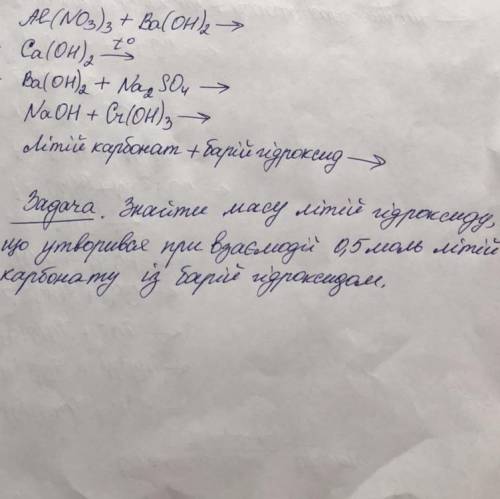 Al(NO3)3 + Ba(OH)2 →
Ca(OH)2 t° →
Ba(OH)2 + Na2SO4 →
NaOH + Cr(OH)3 →
Літій карбонат + барій гідроксид →
Задача. Знайти масу літій гідроксиду,
що утворився при взаємодії 0,5 моль літій
карбонату із барій гідроксидом.